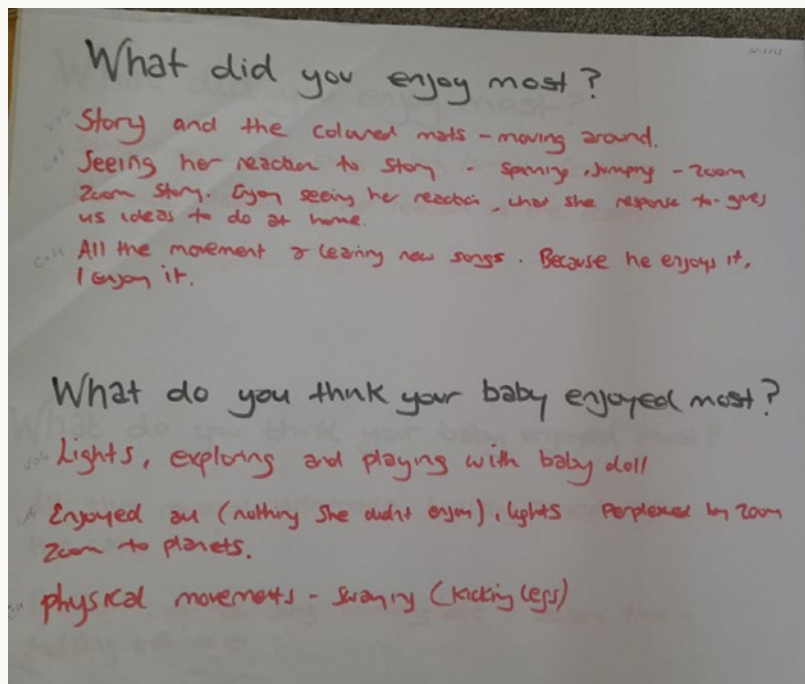 What did you enjoy most?
Story and the colored mats - moving around.
Seeing her reaction to story - spinning, jumping - zoom
zoom story. Enjoy seeing her reaction, what she response to - gives
us ideas to do at home.
All the movement & learning new songs. Because he enjoys it,
I enjoy it.
What do you think your baby enjoyed most?
Lights, exploring and playing with baby doll
Enjoyed all (nothing she didn't enjoy), lights perplexed by zoom
zoom to planets.
physical movements - swaying (kicking legs)